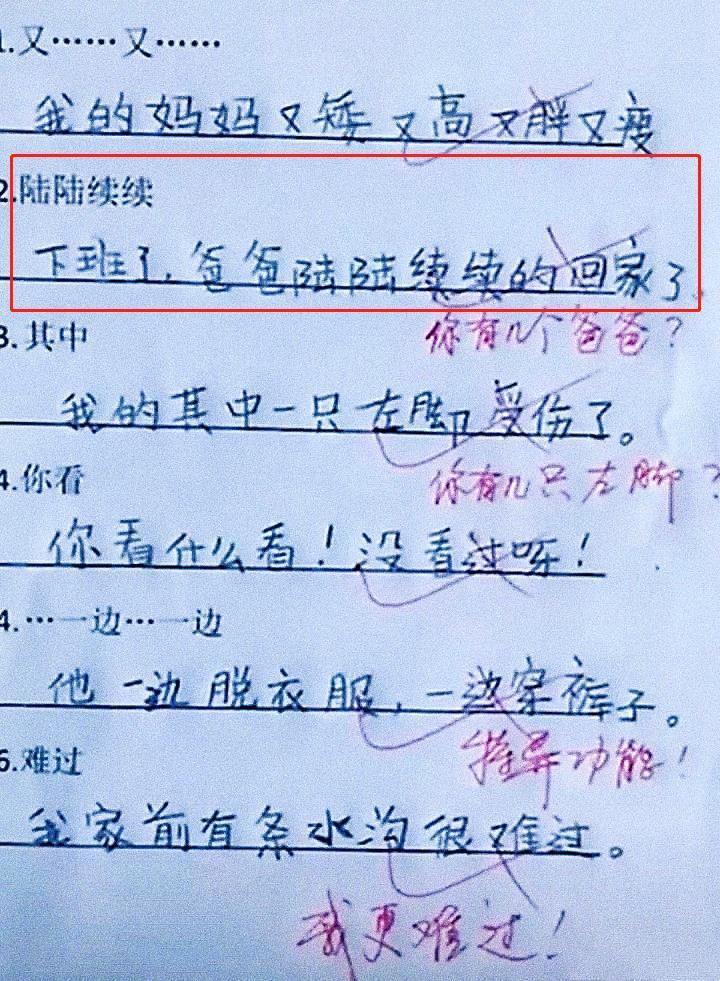 1.又……又……
我的妈妈又矮又高又胖又瘦
2.陆陆续续
下班了,爸爸陆陆续续的回家了.
你有几个爸爸?
3.其中
我的其中一只左脚受伤了。
你有几只左脚?
4.你看
你看什么看!没看过呀!
4.…一边…一边
他一边脱衣服,一边穿裤子。
特异功能!
6.难过
我家前有条水沟很难过。
我更难过!